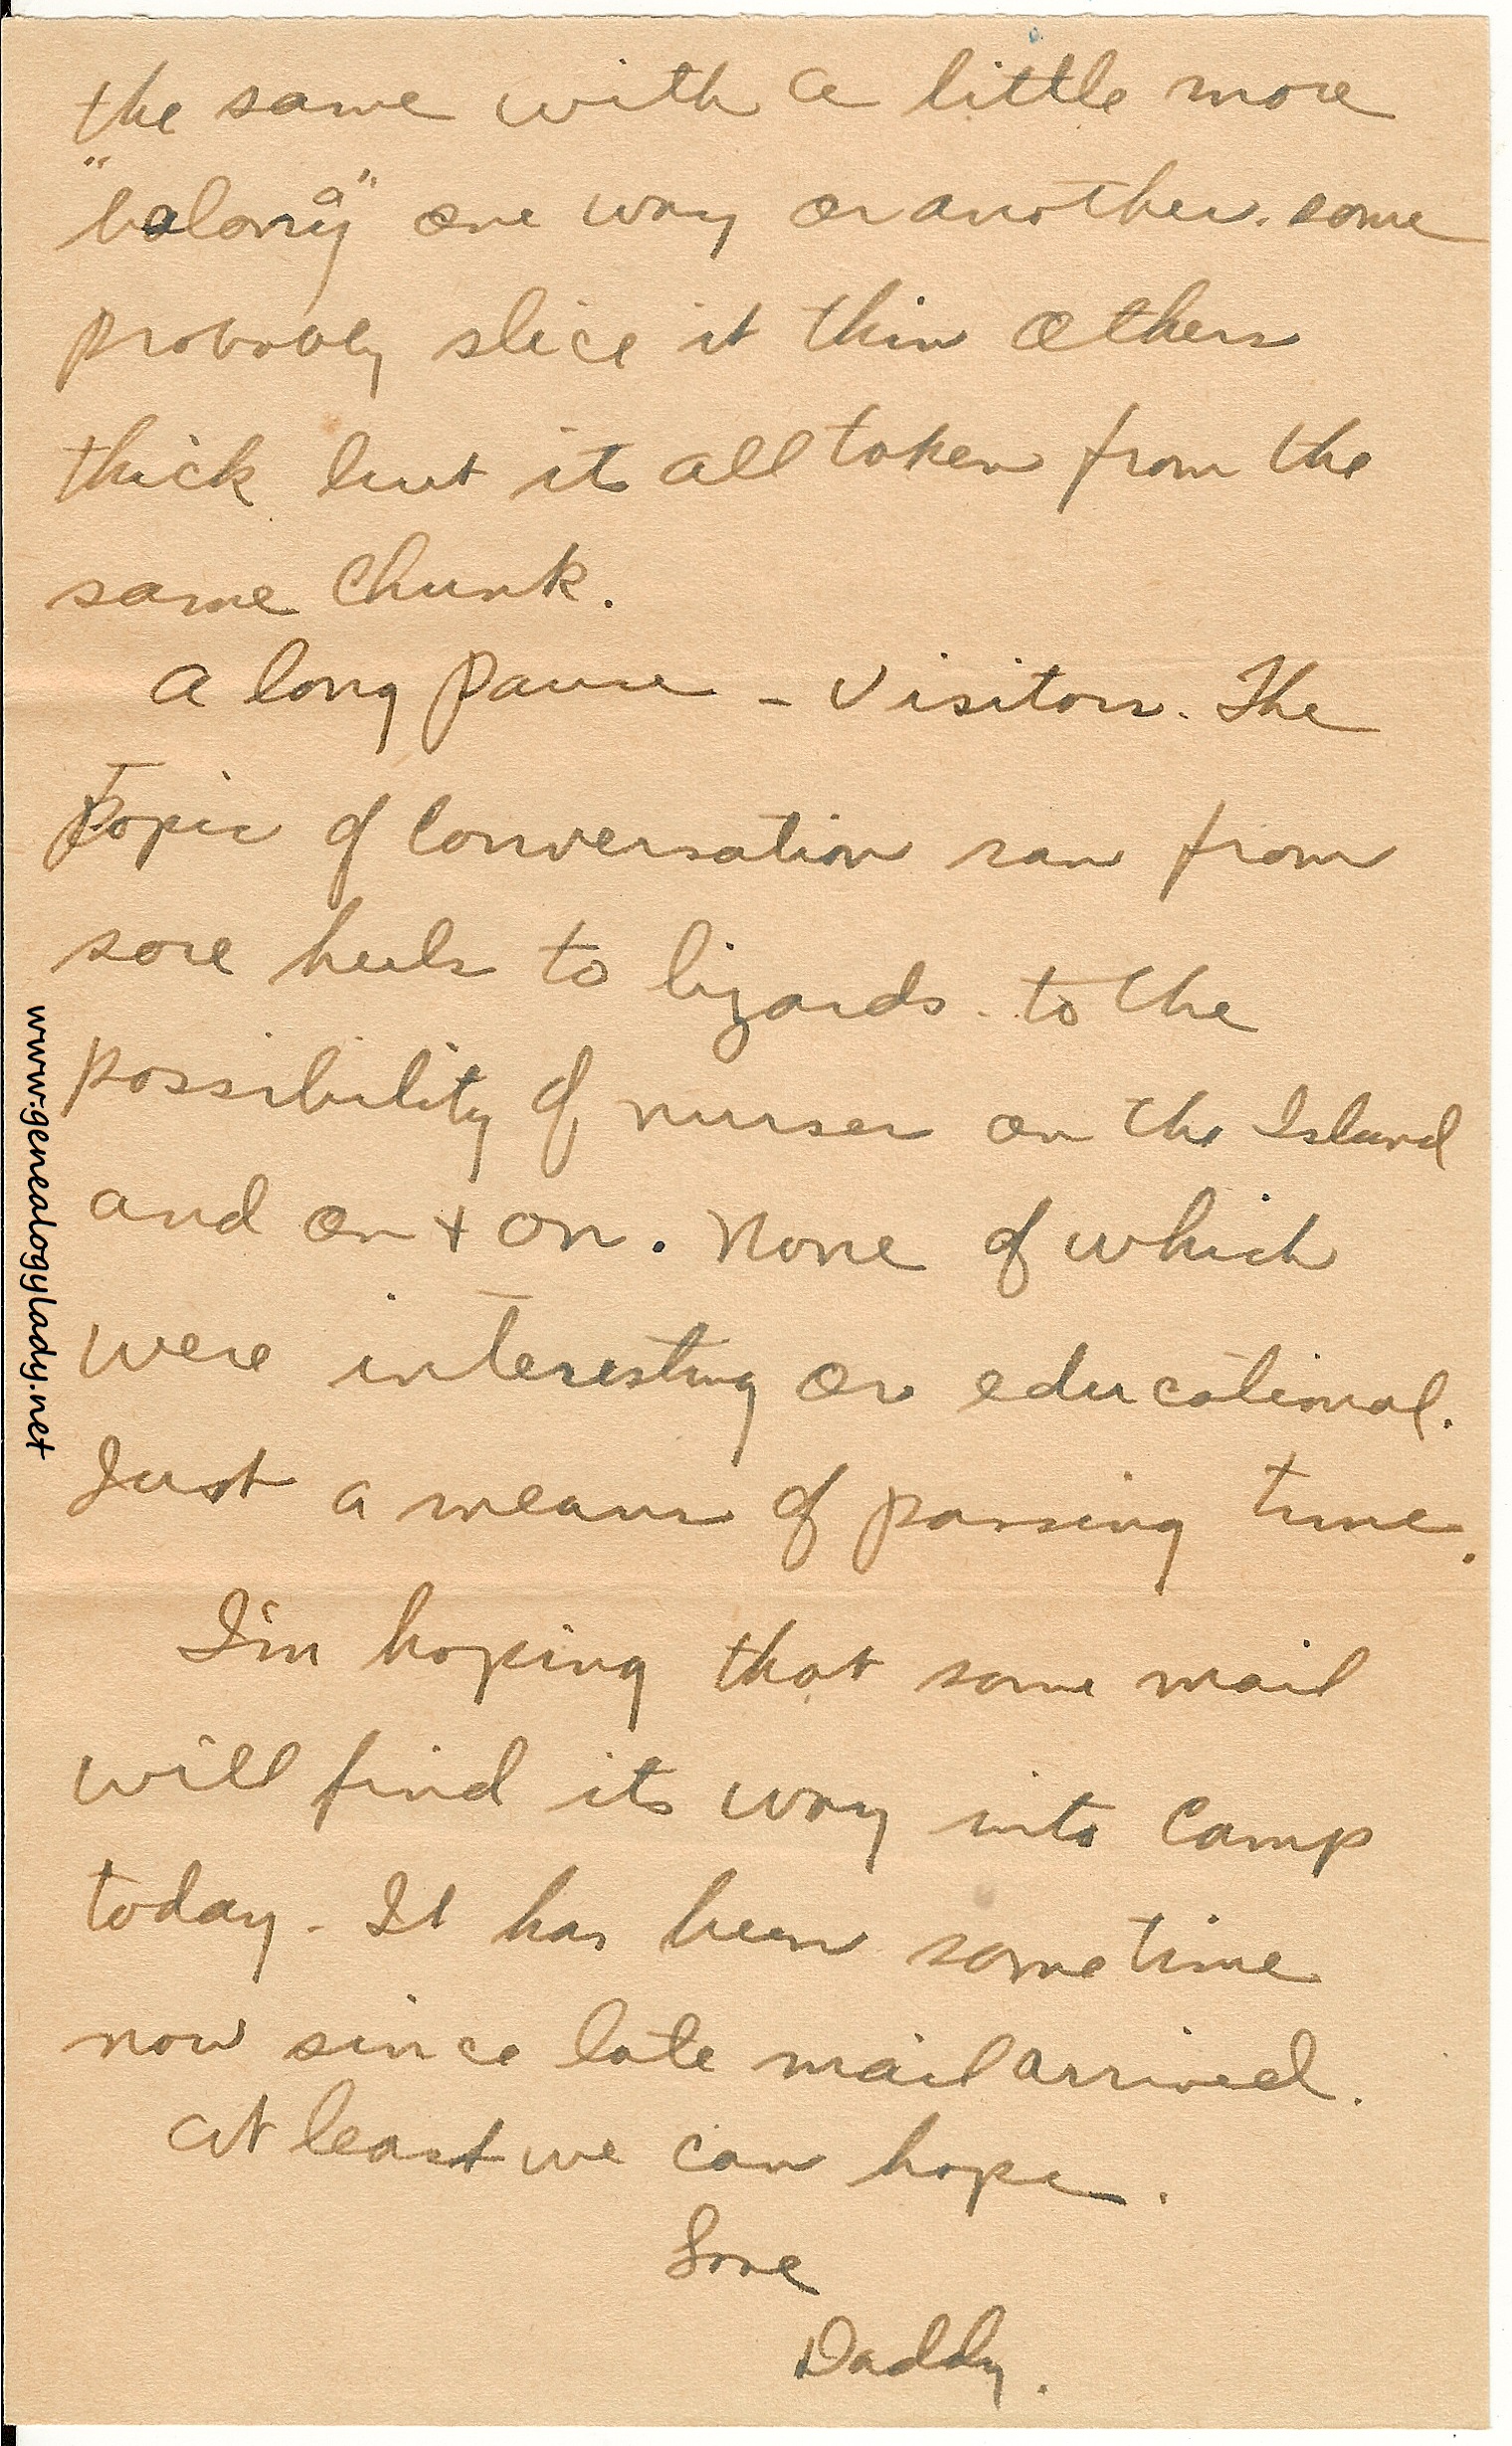 the same with a little more
"balony" one way or another. some
probably slice it thin others
thick but its all taken from the
same chunk.
A long pause - visitors. The
Topic of conversation ran from
sore heels to lizards. to the
possibility of nurses on the Island
and on + on. None of which
were interesting or educational.
Just a means of passing time.
I'm hoping that some mail
will find its way into camp
today. It has been sometime
now since late mail arrived.
At least we can hope.
Love
Daddy.
www.genealogylady.net